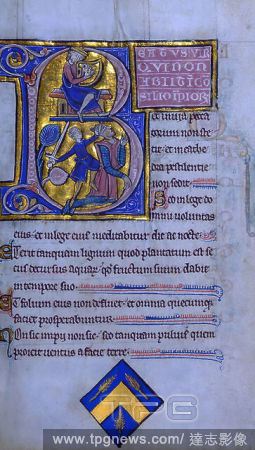 EATUS VIR
QVI NON
ABIIT I CO
SILIO IMPIOR
et in uia pecca
torum non ste
tit. et in cathe
dra pestilentie
non sedit.
Sed in lege do
mini uoluntas
eius. et in lege eius meditabitur die ac nocte.
Et erit tanquam lignum quod plantatum est se
cus decursus aquar. qd fructum suum dabit
in tempore suo.
Et folium eius non defluet. et omnia quecunq;
faciet prosperabuntur.
Non sic impii non sic. sed tanquam puluis quem
proicit uentus a facie terre.
TPG
www.tpgnews.com/ 達志影像